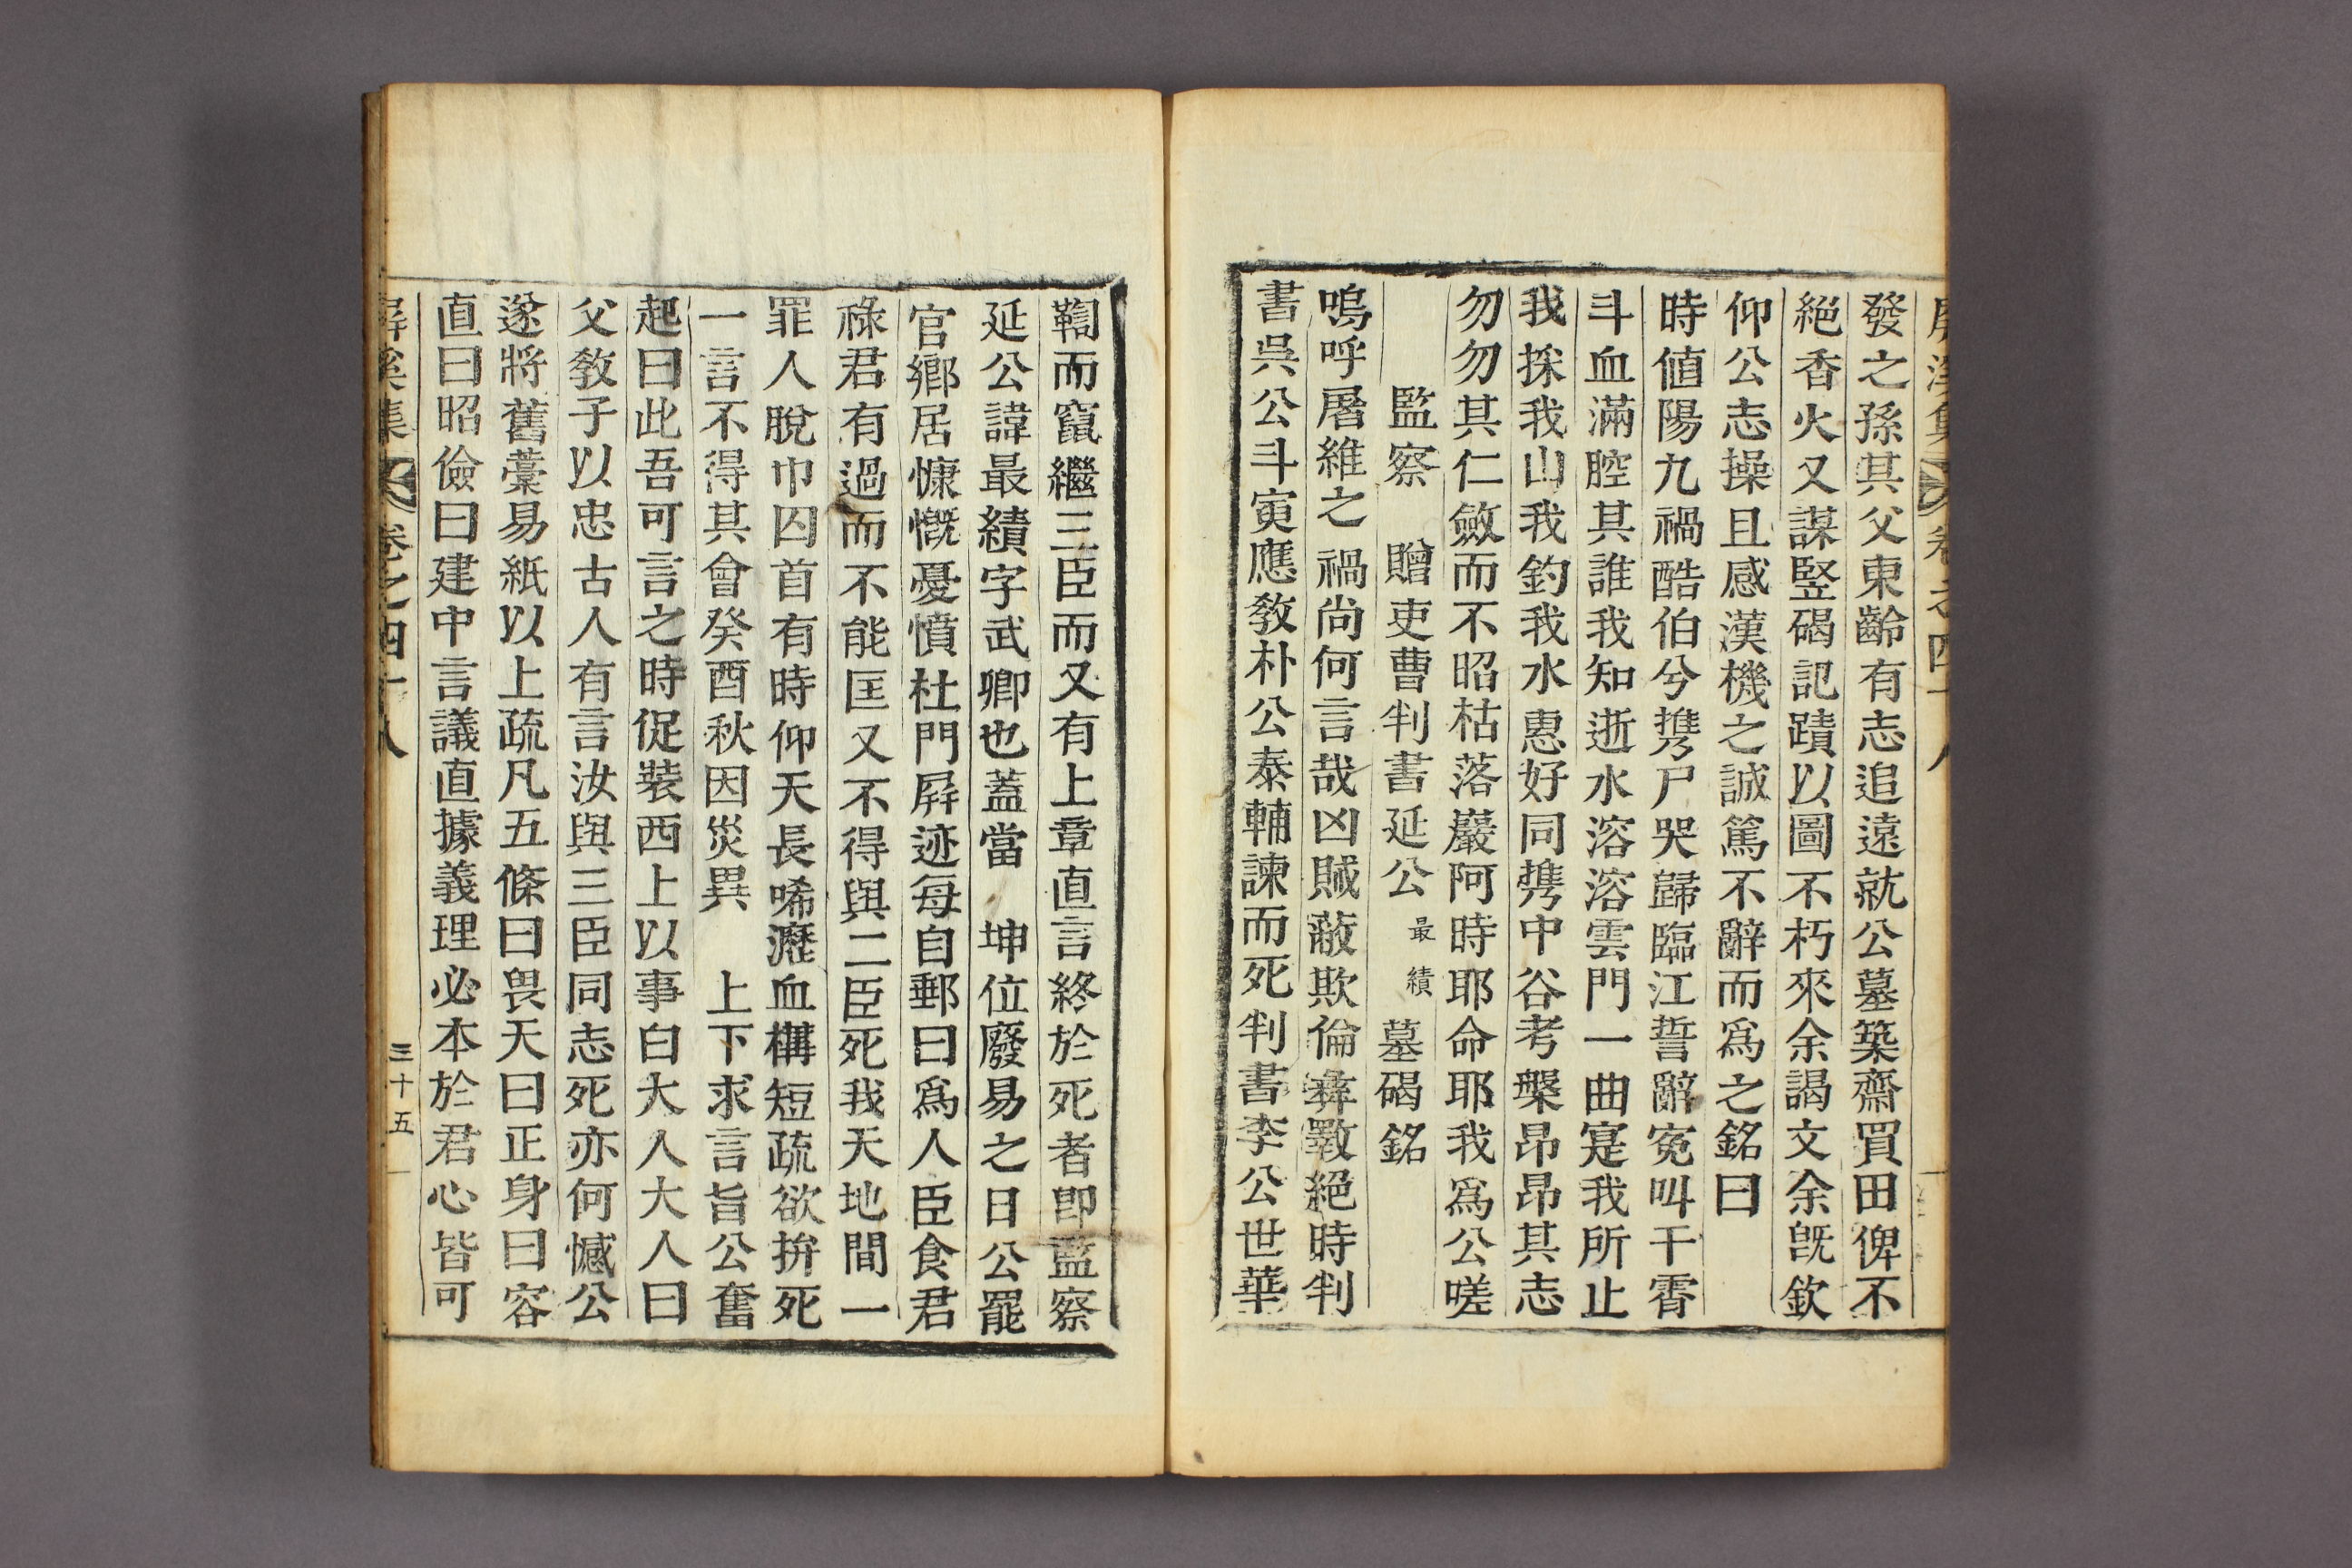 屛溪集 卷之四十八
發之孫其父東齡有志追遠就公墓築齋買田俾不
絕香火又謀竪碣記蹟以圖不朽來余謁文余旣欽
仰公志操且感漢機之誠篤不辭而爲之銘曰
時値陽九禍酷伯兮携尸哭歸臨江誓辭寃叫干霄
斗血滿腔其誰我知逝水溶溶雲門一曲寔我所止
我採我山我釣我水惠好同携中谷考槃昂昂其志
勿勿其仁斂而不昭枯落巖阿時耶命耶我爲公嗟
監察 贈吏曹判書延公最績墓碣銘
嗚呼屠維之禍尙何言哉凶賊蔽欺倫彝斁絕時判
書吳公斗寅應敎朴公泰輔諫而死判書李公世華
鞫而竄繼三臣而又有上章直言終於死者卽監察
延公諱最績字武卿也蓋當 坤位廢易之日公罷
官鄕居慷慨憂憤杜門屛迹每自郵曰爲人臣食君
祿君有過而不能匡又不得與二臣死我天地間一
罪人脫巾囚首有時仰天長唏瀝血構短疏欲拚死
一言不得其會癸酉秋因災異 上下求言旨公奮
起曰此吾可言之時促裝西上以事白大人大人曰
父敎子以忠古人有言汝與三臣同志死亦何憾公
遂將舊藁易紙以上疏凡五條曰畏天曰正身曰容
直曰昭儉曰建中言議直據義理必本於君心皆可
屛溪集 卷之四十八 三十五